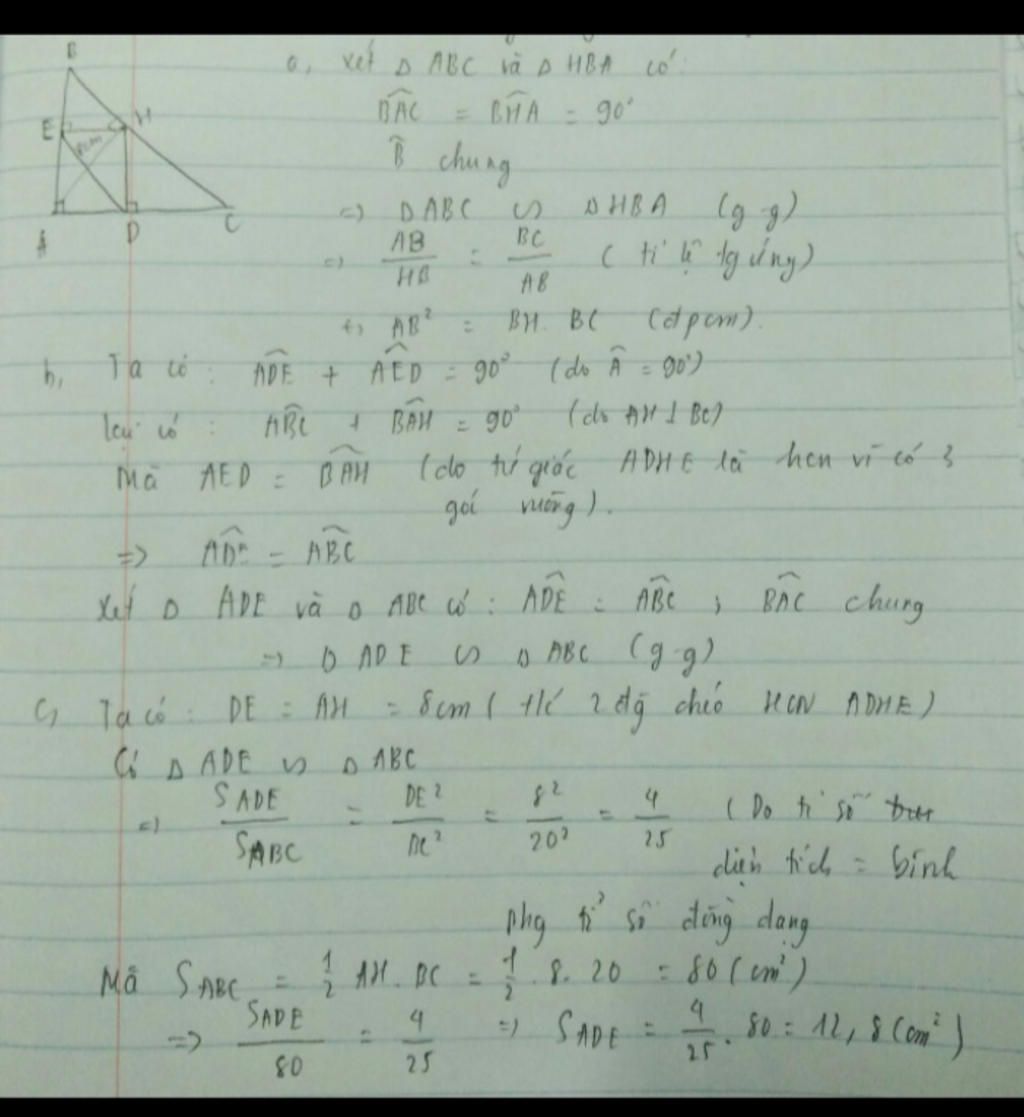 B
E
H
A
D
C
a, xét Δ ABC và Δ HBA có:
BAC = BHA = 90°
B chung
=> Δ ABC ∽ Δ HBA (g-g)
=> AB/HB = BC/AB (tỉ lệ tg ứng)
<=> AB² = BH. BC (đpcm).
b, Ta có : ADE + AED = 90° (do A = 90°)
lại có : ABC + BAH = 90° (do AH ⊥ BC)
Mà AED = BAH (do tứ giác ADHE là hcn vì có 3
góc vuông).
=> ADE = ABC
xét Δ ADE và Δ ABC có : ADE = ABC ; BAC chung
=> Δ ADE ∽ Δ ABC (g-g)
c, Ta có : DE = AH = 8cm ( t/c 2 đg chéo HCN ADHE)
Có Δ ADE ∽ Δ ABC
=> S ADE / S ABC = DE² / BC² = 8² / 20² = 4/25 (Do tỉ số
diện tích = bình
phg tỉ số đồng dạng
Mà S ABC = 1/2 AH. BC = 1/2 . 8. 20 = 80 (cm²)
=> S ADE / 80 = 4/25 => S ADE = 4/25 . 80 = 12,8 (cm²)